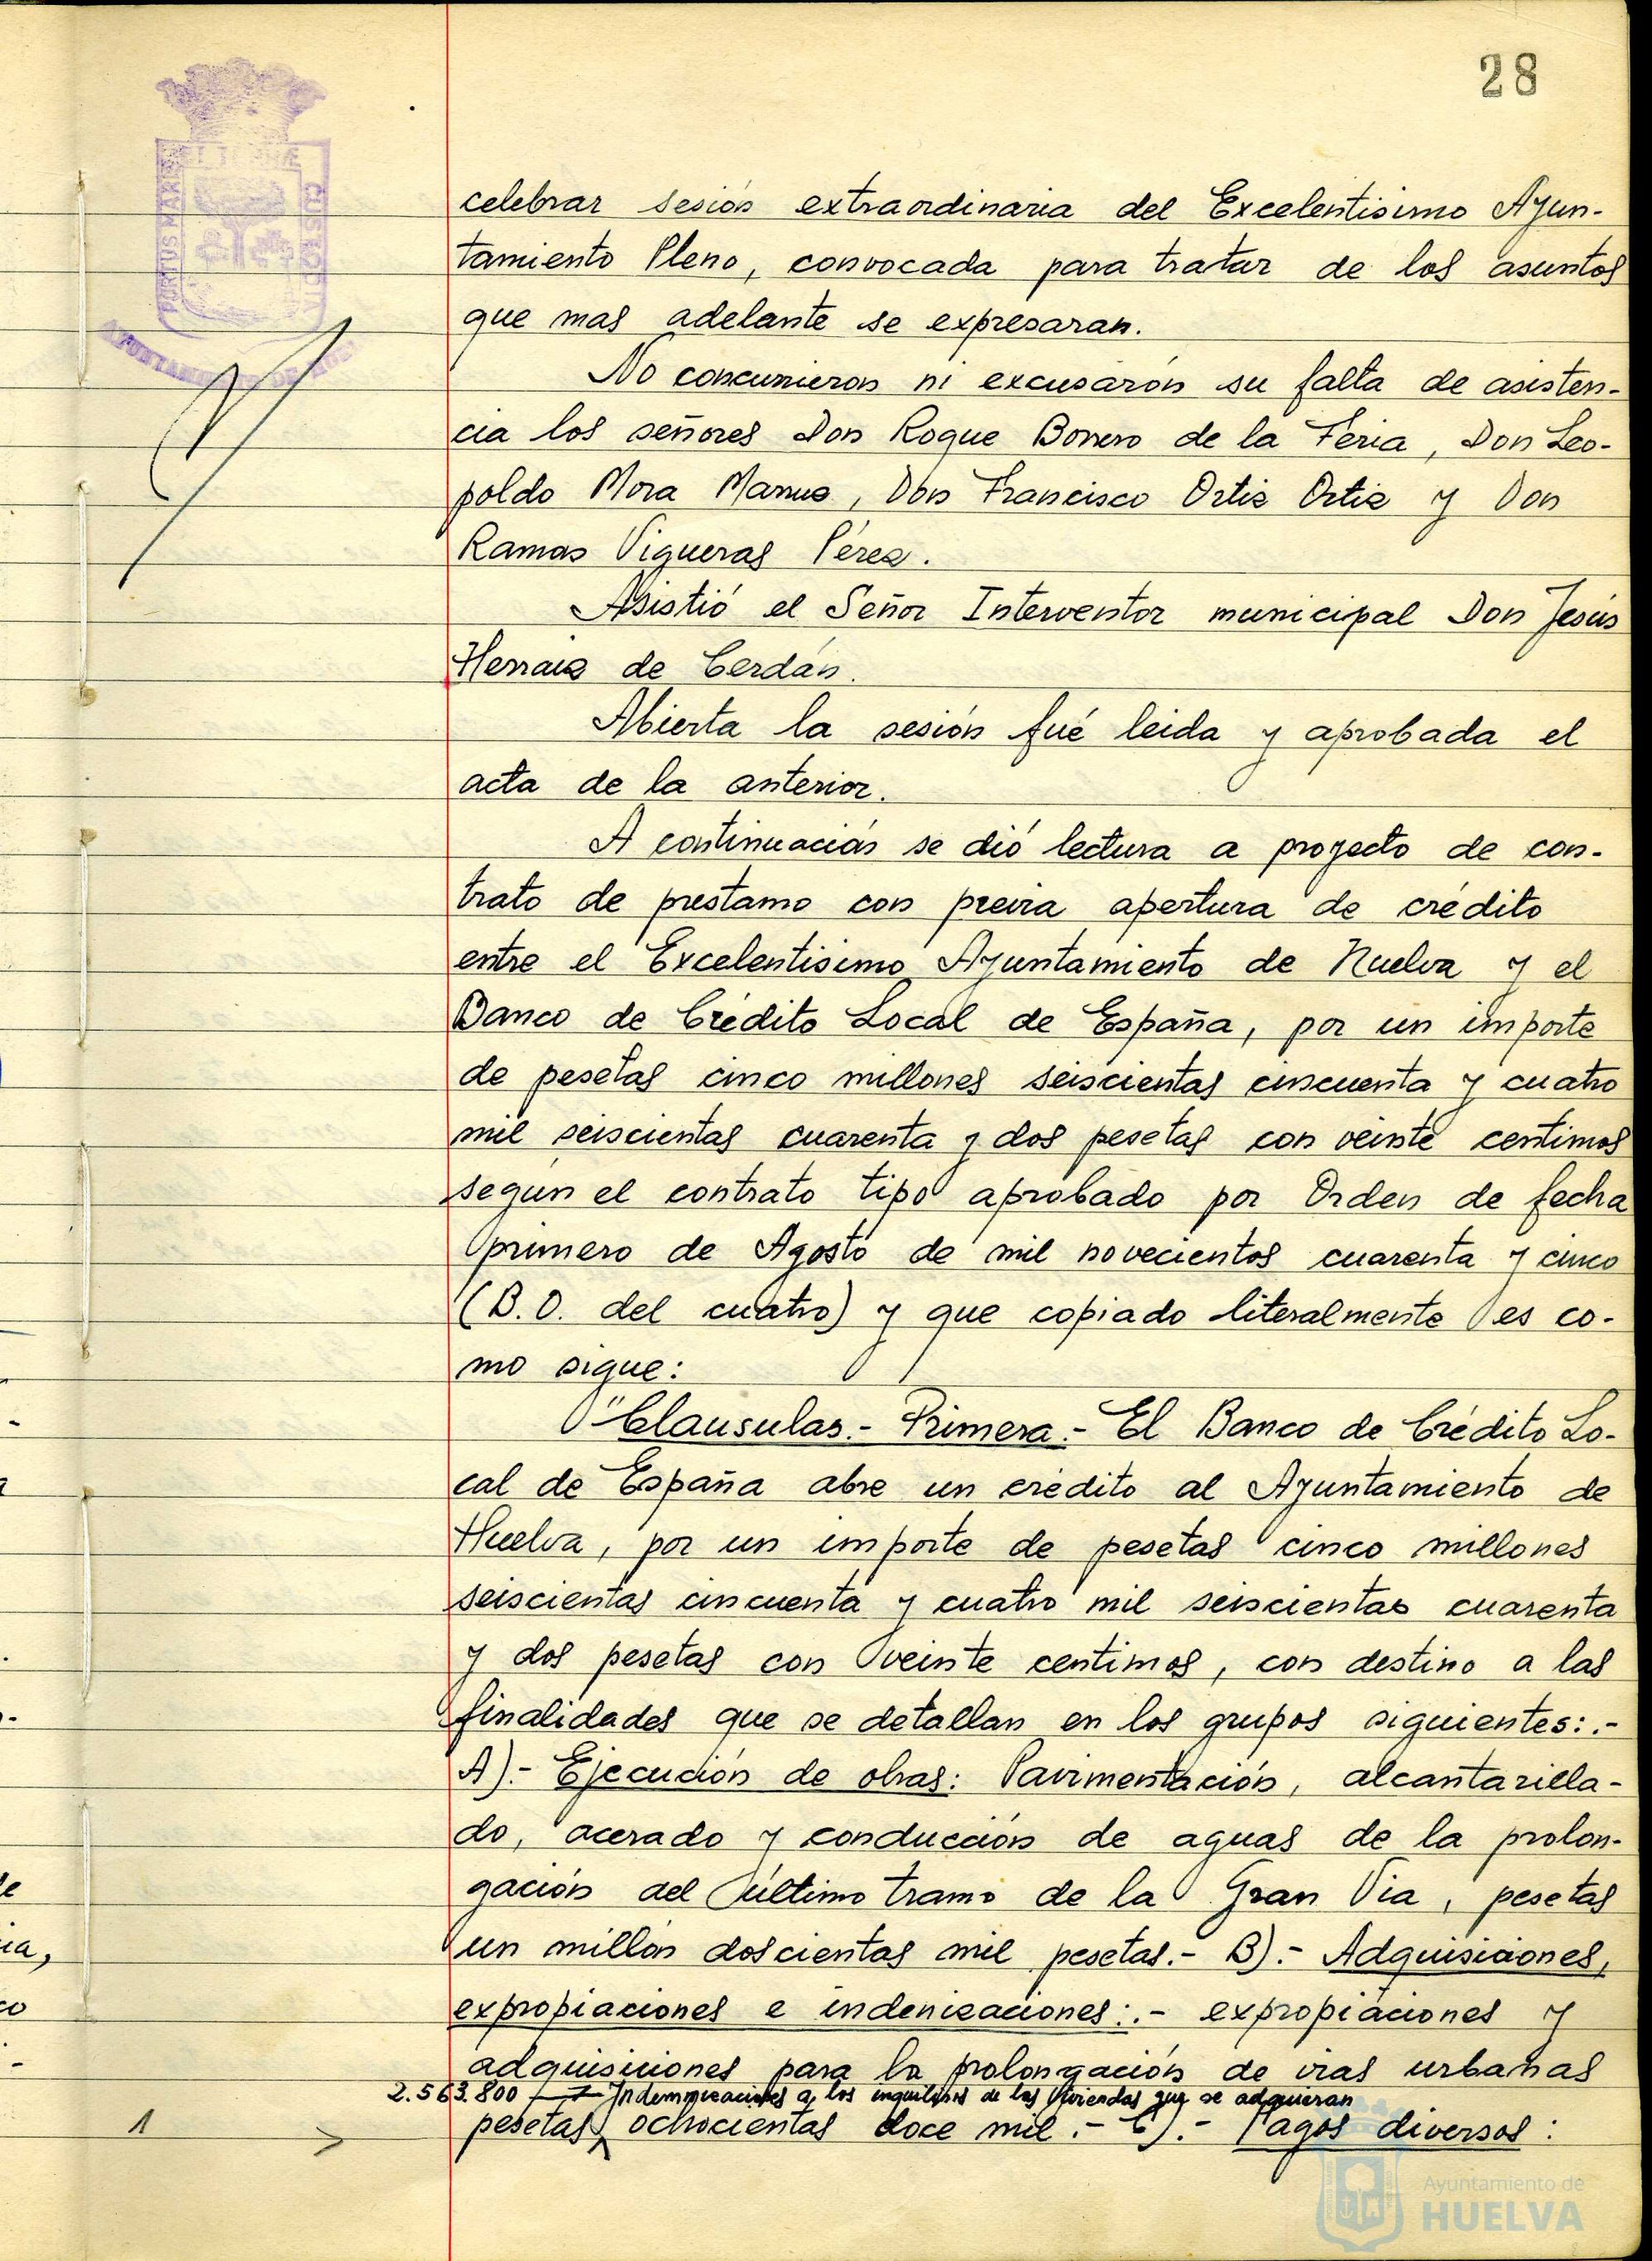 28
PORTUS MARIS ET TERRAE CUSTODIA
AYUNTAMIENTO DE HUELVA
celebrar sesión extraordinaria del Excelentisimo Ayun-
tamiento Pleno, convocada para tratar de los asuntos
que mas adelante se expresaran.
No concurrieron ni excusarón su falta de asisten-
cia los señores Don Roque Borrero de la Feria, Don Leo-
poldo Mora Marrus, Don Francisco Ortiz Ortiz y Don
Ramon Vigueras Pérez.
Asistió el Señor Interventor municipal Don Jesús
Herraiz de Cerdán.
Abierta la sesión fué leida y aprobada el
acta de la anterior.
A continuación se dió lectura a proyecto de con-
trato de prestamo con previa apertura de crédito
entre el Excelentisimo Ayuntamiento de Huelva y el
Banco de Crédito Local de España, por un importe
de pesetas cinco millones seiscientas cincuenta y cuatro
mil seiscientas cuarenta y dos pesetas con veinte centimos
según el contrato tipo aprobado por Orden de fecha
primero de Agosto de mil novecientos cuarenta y cinco
(B.O. del cuatro) y que copiado literalmente es co-
mo sigue:
"Clausulas.- Primera.- El Banco de Crédito Lo-
cal de España abre un crédito al Ayuntamiento de
Huelva, por un importe de pesetas cinco millones
seiscientas cincuenta y cuatro mil seiscientas cuarenta
y dos pesetas con veinte centimos, con destino a las
finalidades que se detallan en los grupos siguientes:.-
A).- Ejecución de obras: Pavimentación, alcantarilla-
do, acerado y conducción de aguas de la prolon-
gación del último tramo de la Gran Via, pesetas
un millón doscientas mil pesetas.- B).- Adquisiciones,
expropiaciones e indenizaciones:.- expropiaciones y
adquisiciones para la prolongación de vias urbanas
2.563.800 Indemnizaciones a los inquilinos de las Viviendas que se adquieran
1 > pesetas ochocientas doce mil.- C).- Pagos diversos:
Ayuntamiento de
HUELVA